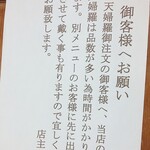 御客様へお願い
天婦羅御注文の御客様へ、当店の
天婦羅は品数が多い為時間がかかり
ます。別メニューのお客様に先に出
させて戴く事も有りますので宜しく
お願致します。
店主